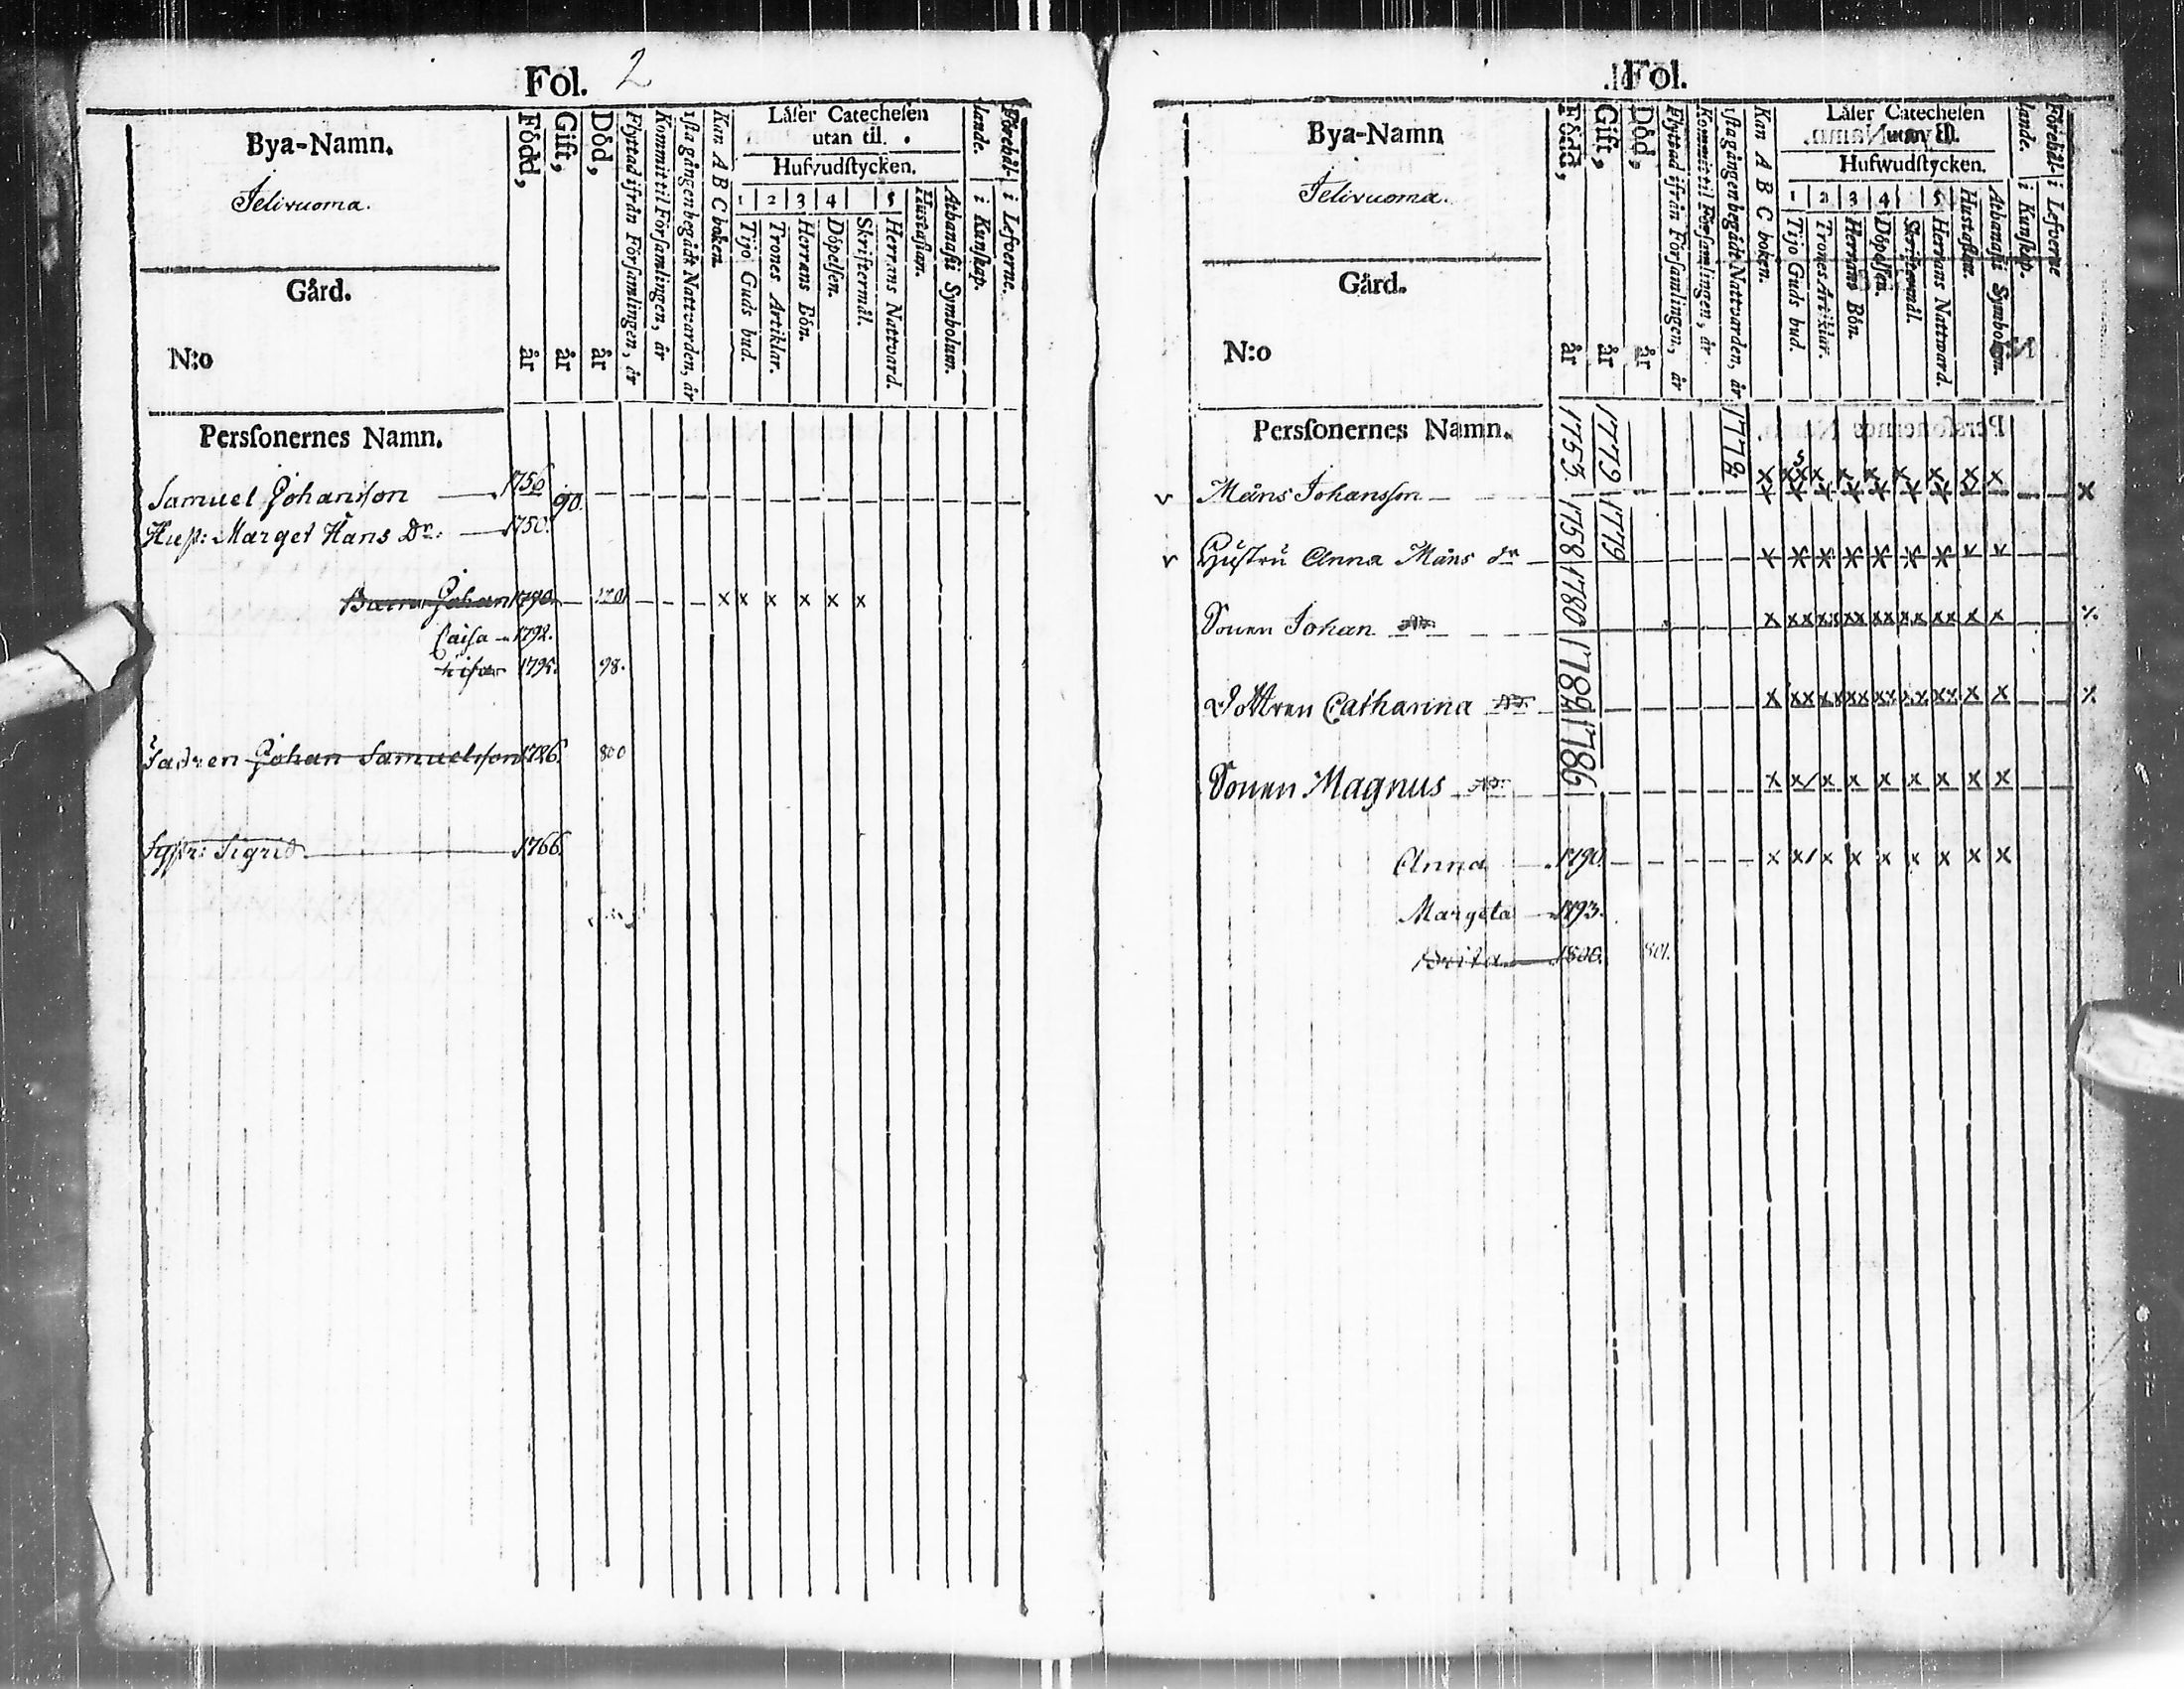 Fol. 2
Bya-Namn.
Jelivuoma.
Gård.
N:o
Född, år
Gift, år
Död, år
Flyttad ifrån Församlingen, år
Kommit til Församlingen, år
1sta gången begådt Nattvarden, år
Kan A B C boken.
Låser Catechesen
utan til.
Hufvudstycken.
1 2 3 4 5
Tijo Guds bud.
Trones Artiklar.
Herrans Bön.
Döpelsen.
Skriftermål.
Herrans Nattvard.
Hustaflan.
Athanasii Symbolum.
Förehål-
lande.
i Kunskap.
i Lefverne.
Persſonernes Namn.
Samuel Johansson 1756 90.
Hust: Marget Hans Dr: 1750.
Barn Johan 1790. x x x x x x
Caisa 1792.
Lisa 1795. 98.
Johan Samuelsson 1786. 800
Sigrid 1766.
Fol.
Bya-Namn
Jelivuoma.
Gård.
N:o
Född, år
Gift, år
Död, år
Flyttad ifrån Församlingen, år
Kommit til Församlingen, år
1sta gången begådt Nattvarden, år
Kan A B C boken.
Låser Catechesen
utan til.
Hufwudstycken.
1 2 3 4 5
Tijo Guds bud.
Trones Artiklar.
Herrans Bön.
Döpelsen.
Skriftermål.
Herrans Nattward.
Hustaflan.
Athanasii Symbolum.
Förehål-
lande.
i Kunskap.
i Lefverne
Persſonernes Namn.
v Måns Johansson 1753. 1779 1778 x
v Hustru Anna Måns dr 1758 1779
Sonen Johan 1780
Dottren Catharina 1784
Sonen Magnus 1786
Anna 1790.
Margeta 1793.
Brita 1800. 801.